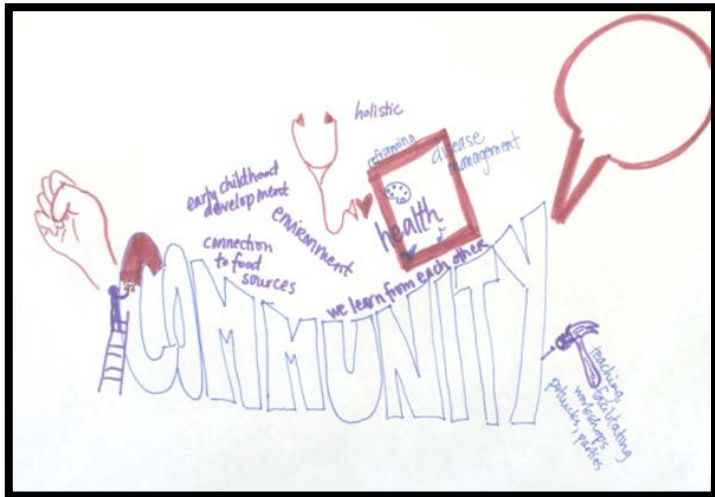 holistic
reframing
disease
management
health
early childhood
development
environment
connection
to food
sources
we learn from each other
COMMUNITY
teaching
facilitating
workshops
potlucks, parties